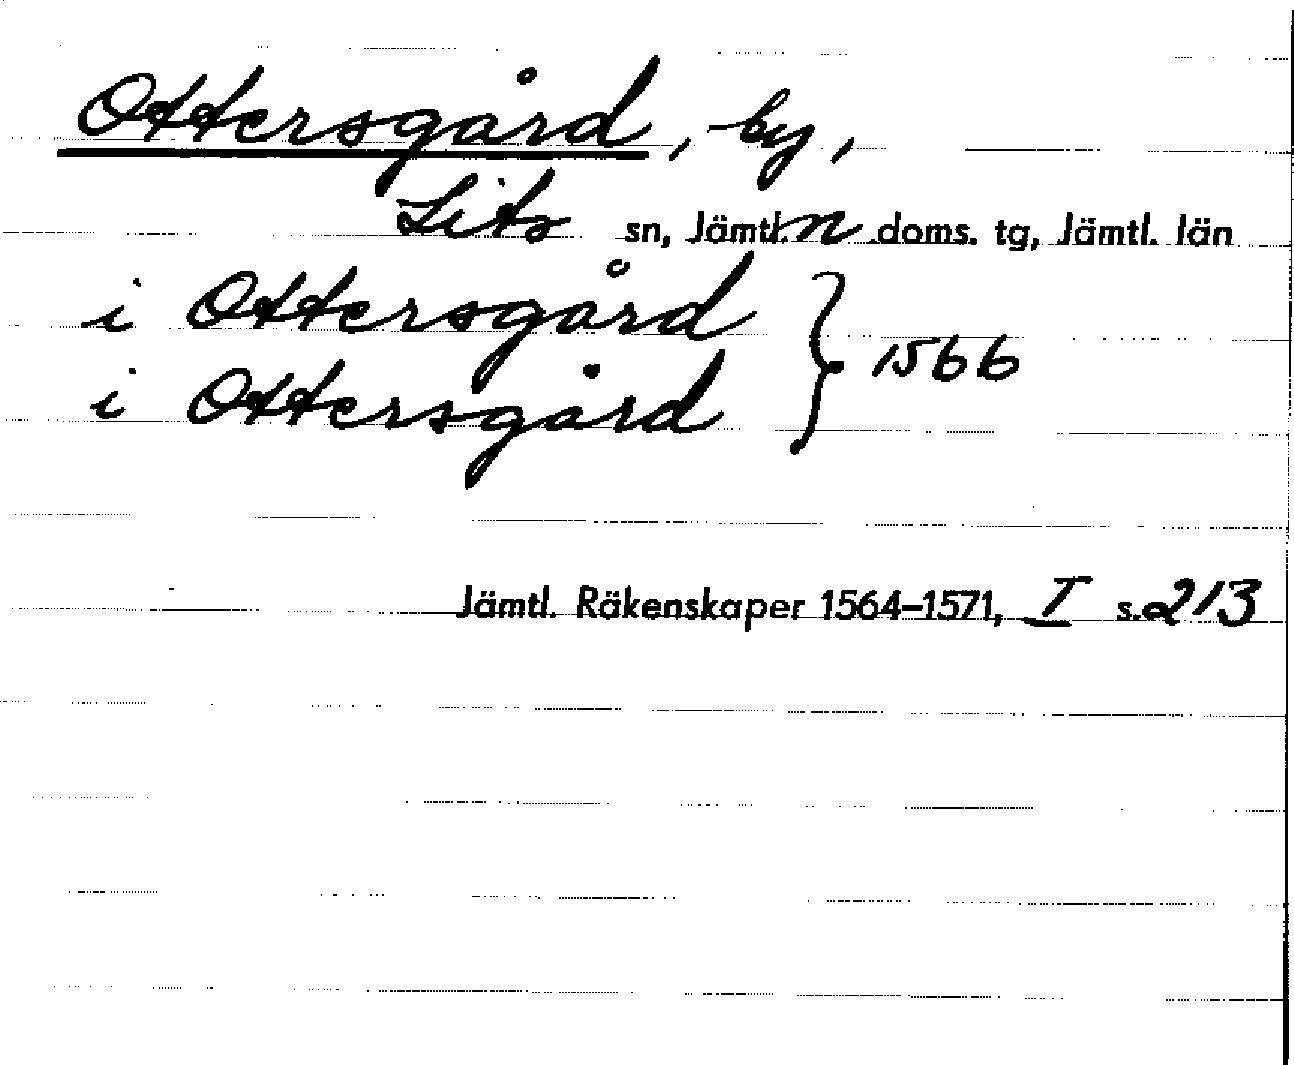 Ottersgård, by,
Lits sn, Jämtl. n doms. tg, Jämtl. län
i Ottersgård
i Ottersgård } 1566
Jämtl. Räkenskaper 1564–1571, I s. 213